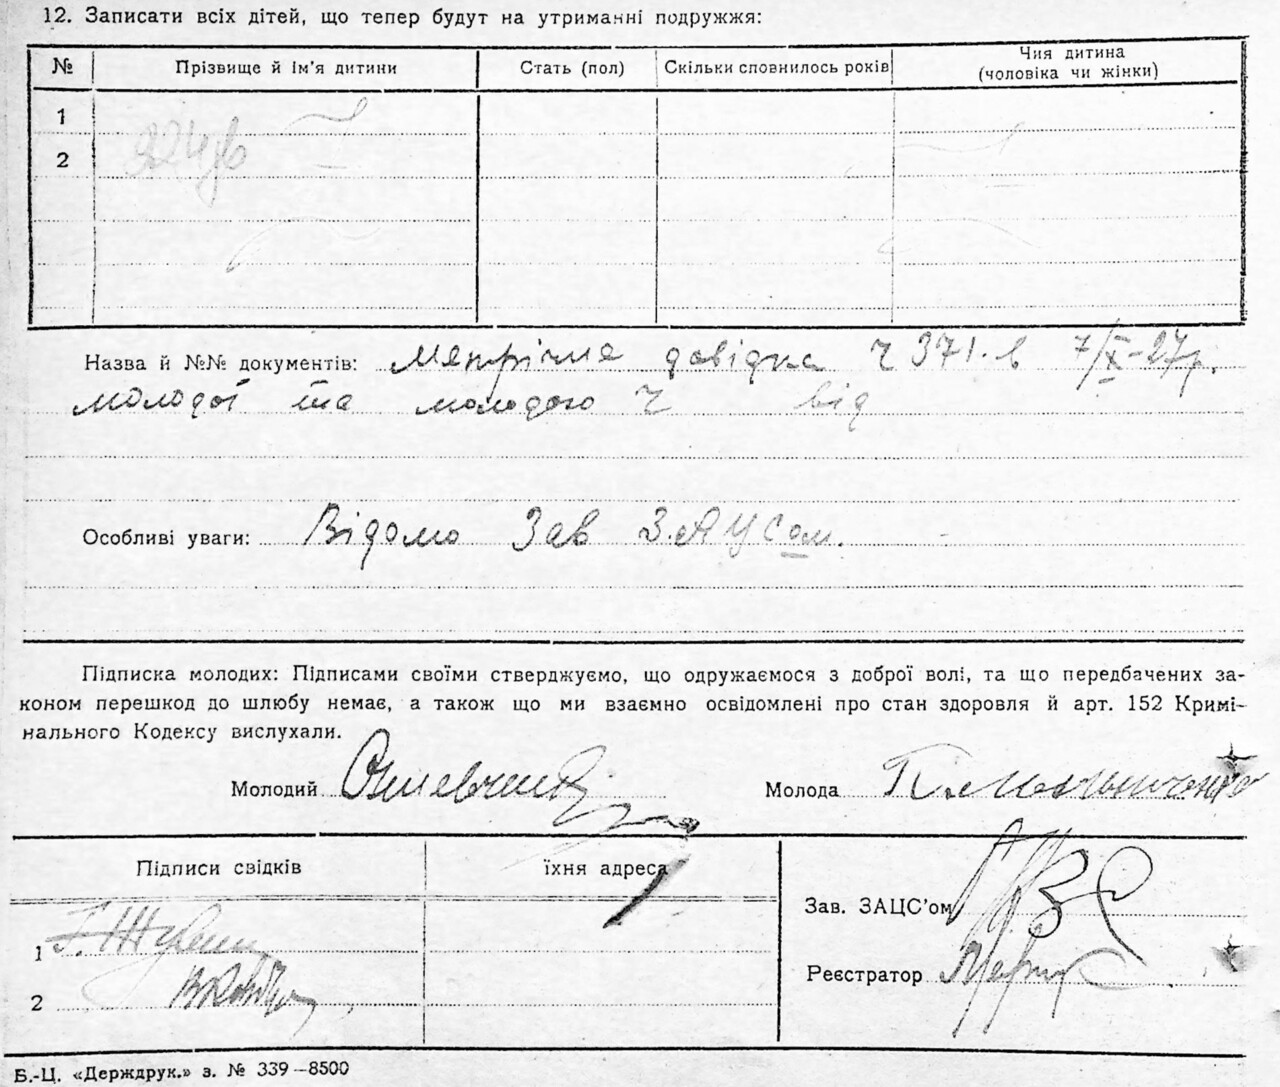 12. Записати всіх дітей, що тепер будут на утриманні подружжя:
№ Прізвище й ім'я дитини Стать (пол) Скільки сповнилось років Чия дитина (чоловіка чи жінки)
1
2
Назва й №№ документів: Метрична довідка ч 371. в 7/X-27р.
молодої та молодого ч від
Особливі уваги: Відомо Зав ЗАЦСом.
Підписка молодих: Підписами своїми стверджуємо, що одружаємося з доброї волі, та що передбачених за-
коном перешкод до шлюбу немає, а також що ми взаємно освідомлені про стан здоровля й арт. 152 Кримі-
нального Кодексу вислухали.
Молодий Молода
Підписи свідків їхня адреса
Зав. ЗАЦС'ом
1
Реєстратор
2
Б.-Ц. «Держдрук.» з. № 339–8500